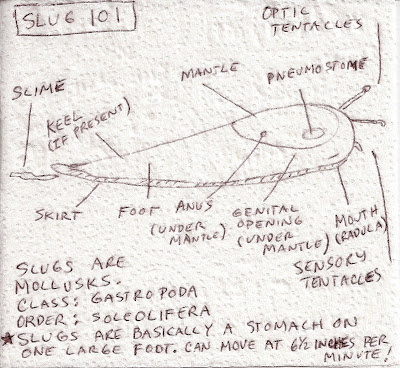 SLUG 101
OPTIC
TENTACLES
MANTLE
PNEUMOSTOME
SLIME
KEEL
(IF PRESENT)
SKIRT
FOOT
ANUS
(UNDER
MANTLE)
GENITAL
OPENING
(UNDER
MANTLE)
MOUTH
(RADULA)
SENSORY
TENTACLES
SLUGS ARE
MOLLUSKS.
CLASS: GASTROPODA
ORDER: SOLEOLIFERA
★SLUGS ARE BASICALLY A STOMACH ON
ONE LARGE FOOT. CAN MOVE AT 6½ INCHES PER
MINUTE!